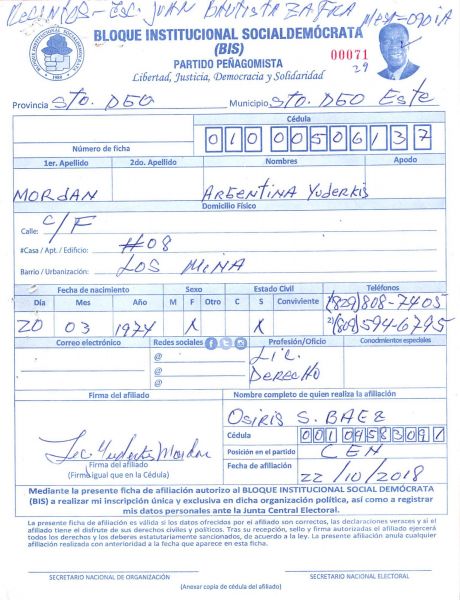 Recinto:- Esc. JUAN BAUTISTA ZAFRA Mesa-0901A
BLOQUE INSTITUCIONAL SOCIALDEMÓCRATA
(BIS)
00071
PARTIDO PEÑAGOMISTA
29
Libertad, Justicia, Democracia y Solidaridad
Provincia STO. DGO Municipio STO. DGO ESTE
Cédula
Número de ficha 010 0050613 7
1er. Apellido 2do. Apellido Nombres Apodo
MORDAN ARGENTINA YUDERKIS
Domicilio Físico
Calle: C/F
#Casa / Apt. / Edificio: #08
Barrio / Urbanización: LOS MINA
Fecha de nacimiento Sexo Estado Civil Teléfonos
Día Mes Año M F Otro C S Conviviente 1(829) 808-7405
20 03 1974 X X 2(809) 594-6795
Correo electrónico Redes sociales Profesión/Oficio Conocimientos especiales
@ LIC.
@ DERECHO
@
Firma del afiliado Nombre completo de quien realiza la afiliación
OSIRIS S. BAEZ
Cédula
001 0458309 1
Posición en el partido CEN
Lic. Yuderkis Mordan
Firma del afiliado
(Firma igual que en la Cédula)
Fecha de afiliación
22/10/2018
Mediante la presente ficha de afiliación autorizo al BLOQUE INSTITUCIONAL SOCIAL DEMÓCRATA
(BIS) a realizar mi inscripción única y exclusiva en dicha organización política, así como a registrar
mis datos personales ante la Junta Central Electoral.
La presente ficha de afiliación es válida si los datos ofrecidos por el afiliado son correctos, las declaraciones veraces y si el
afiliado tiene el disfrute de sus derechos civiles y políticos. Tras su recepción, sello y firma autorizadas el afiliado ejercerá
todos los derechos y los deberes estatutariamente sancionados, de acuerdo a la ley. La presente afiliación anula cualquier
afiliación realizada con anterioridad a la fecha que aparece en esta ficha.
SECRETARIO NACIONAL DE ORGANIZACIÓN SECRETARIO NACIONAL ELECTORAL
(Anexar copia de cédula del afiliado)